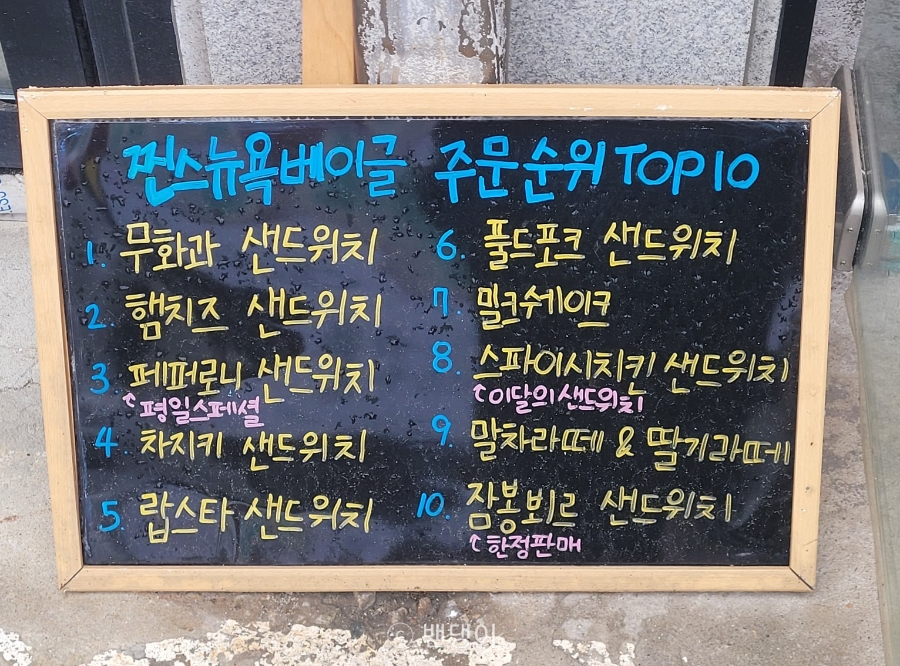 찐스뉴욕베이글 주문순위 TOP10
1. 무화과 샌드위치
2. 햄치즈 샌드위치
3 페퍼로니 샌드위치
↑평일스페셜
4 차지키 샌드위치
5 랍스타 샌드위치
6. 풀드포크 샌드위치
7. 밀크쉐이크
8. 스파이시치킨 샌드위치
↑이달의샌드위치
9 말차라떼 & 딸기라떼
10. 잠봉뵈르 샌드위치
↑한정판매
배댕이